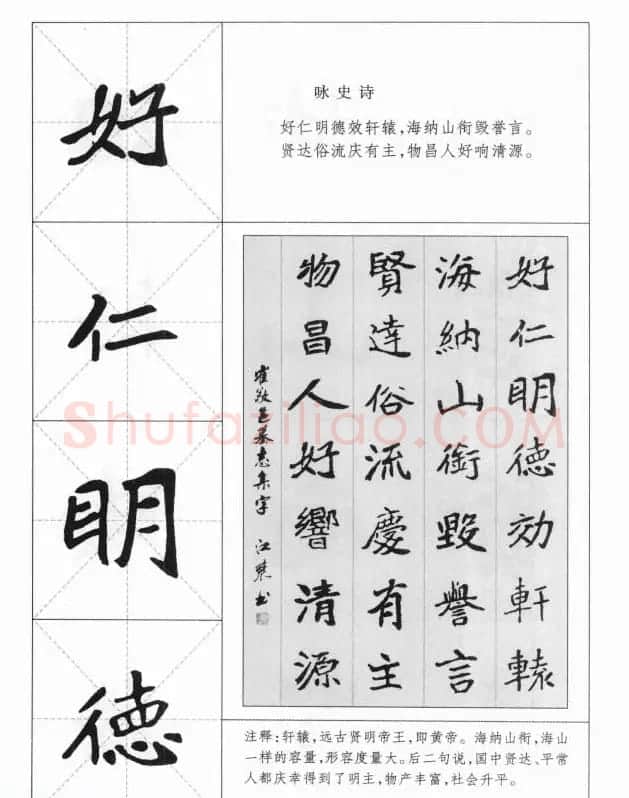 好
仁
明
德
咏史诗
好仁明德效轩辕，海纳山衔毁誉言。
贤达俗流庆有主，物昌人好响清源。
好仁明德効軒轅
海納山銜毀譽言
賢達俗流慶有主
物昌人好響清源
崔敬邕墓志集字 江
书
Shufaziliao.COM
注释：轩辕，远古贤明帝王，即黄帝。海纳山衔，海山
一样的容量，形容度量大。后二句说，国中贤达、平常
人都庆幸得到了明主，物产丰富，社会升平。